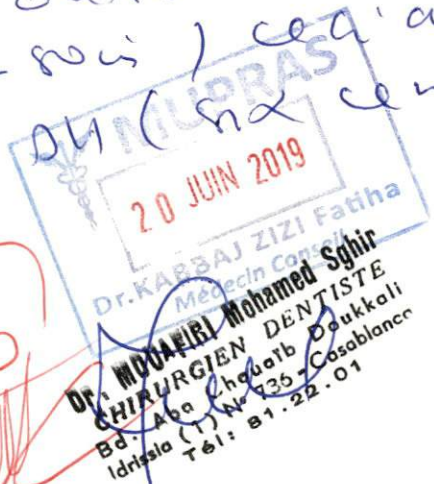 soir) ceci
DH (six cen
MUPRAS
20 JUIN 2019
Dr. KABBAJ ZIZI Fatiha
Médecin Conseil
Dr: MOUAFIRI Mohamed Sghir
CHIRURGIEN DENTISTE
Bd. Aba Chouaïb Doukkali
Idrissia (1) N° 736 - Casablanca
Tél: 81.22.01